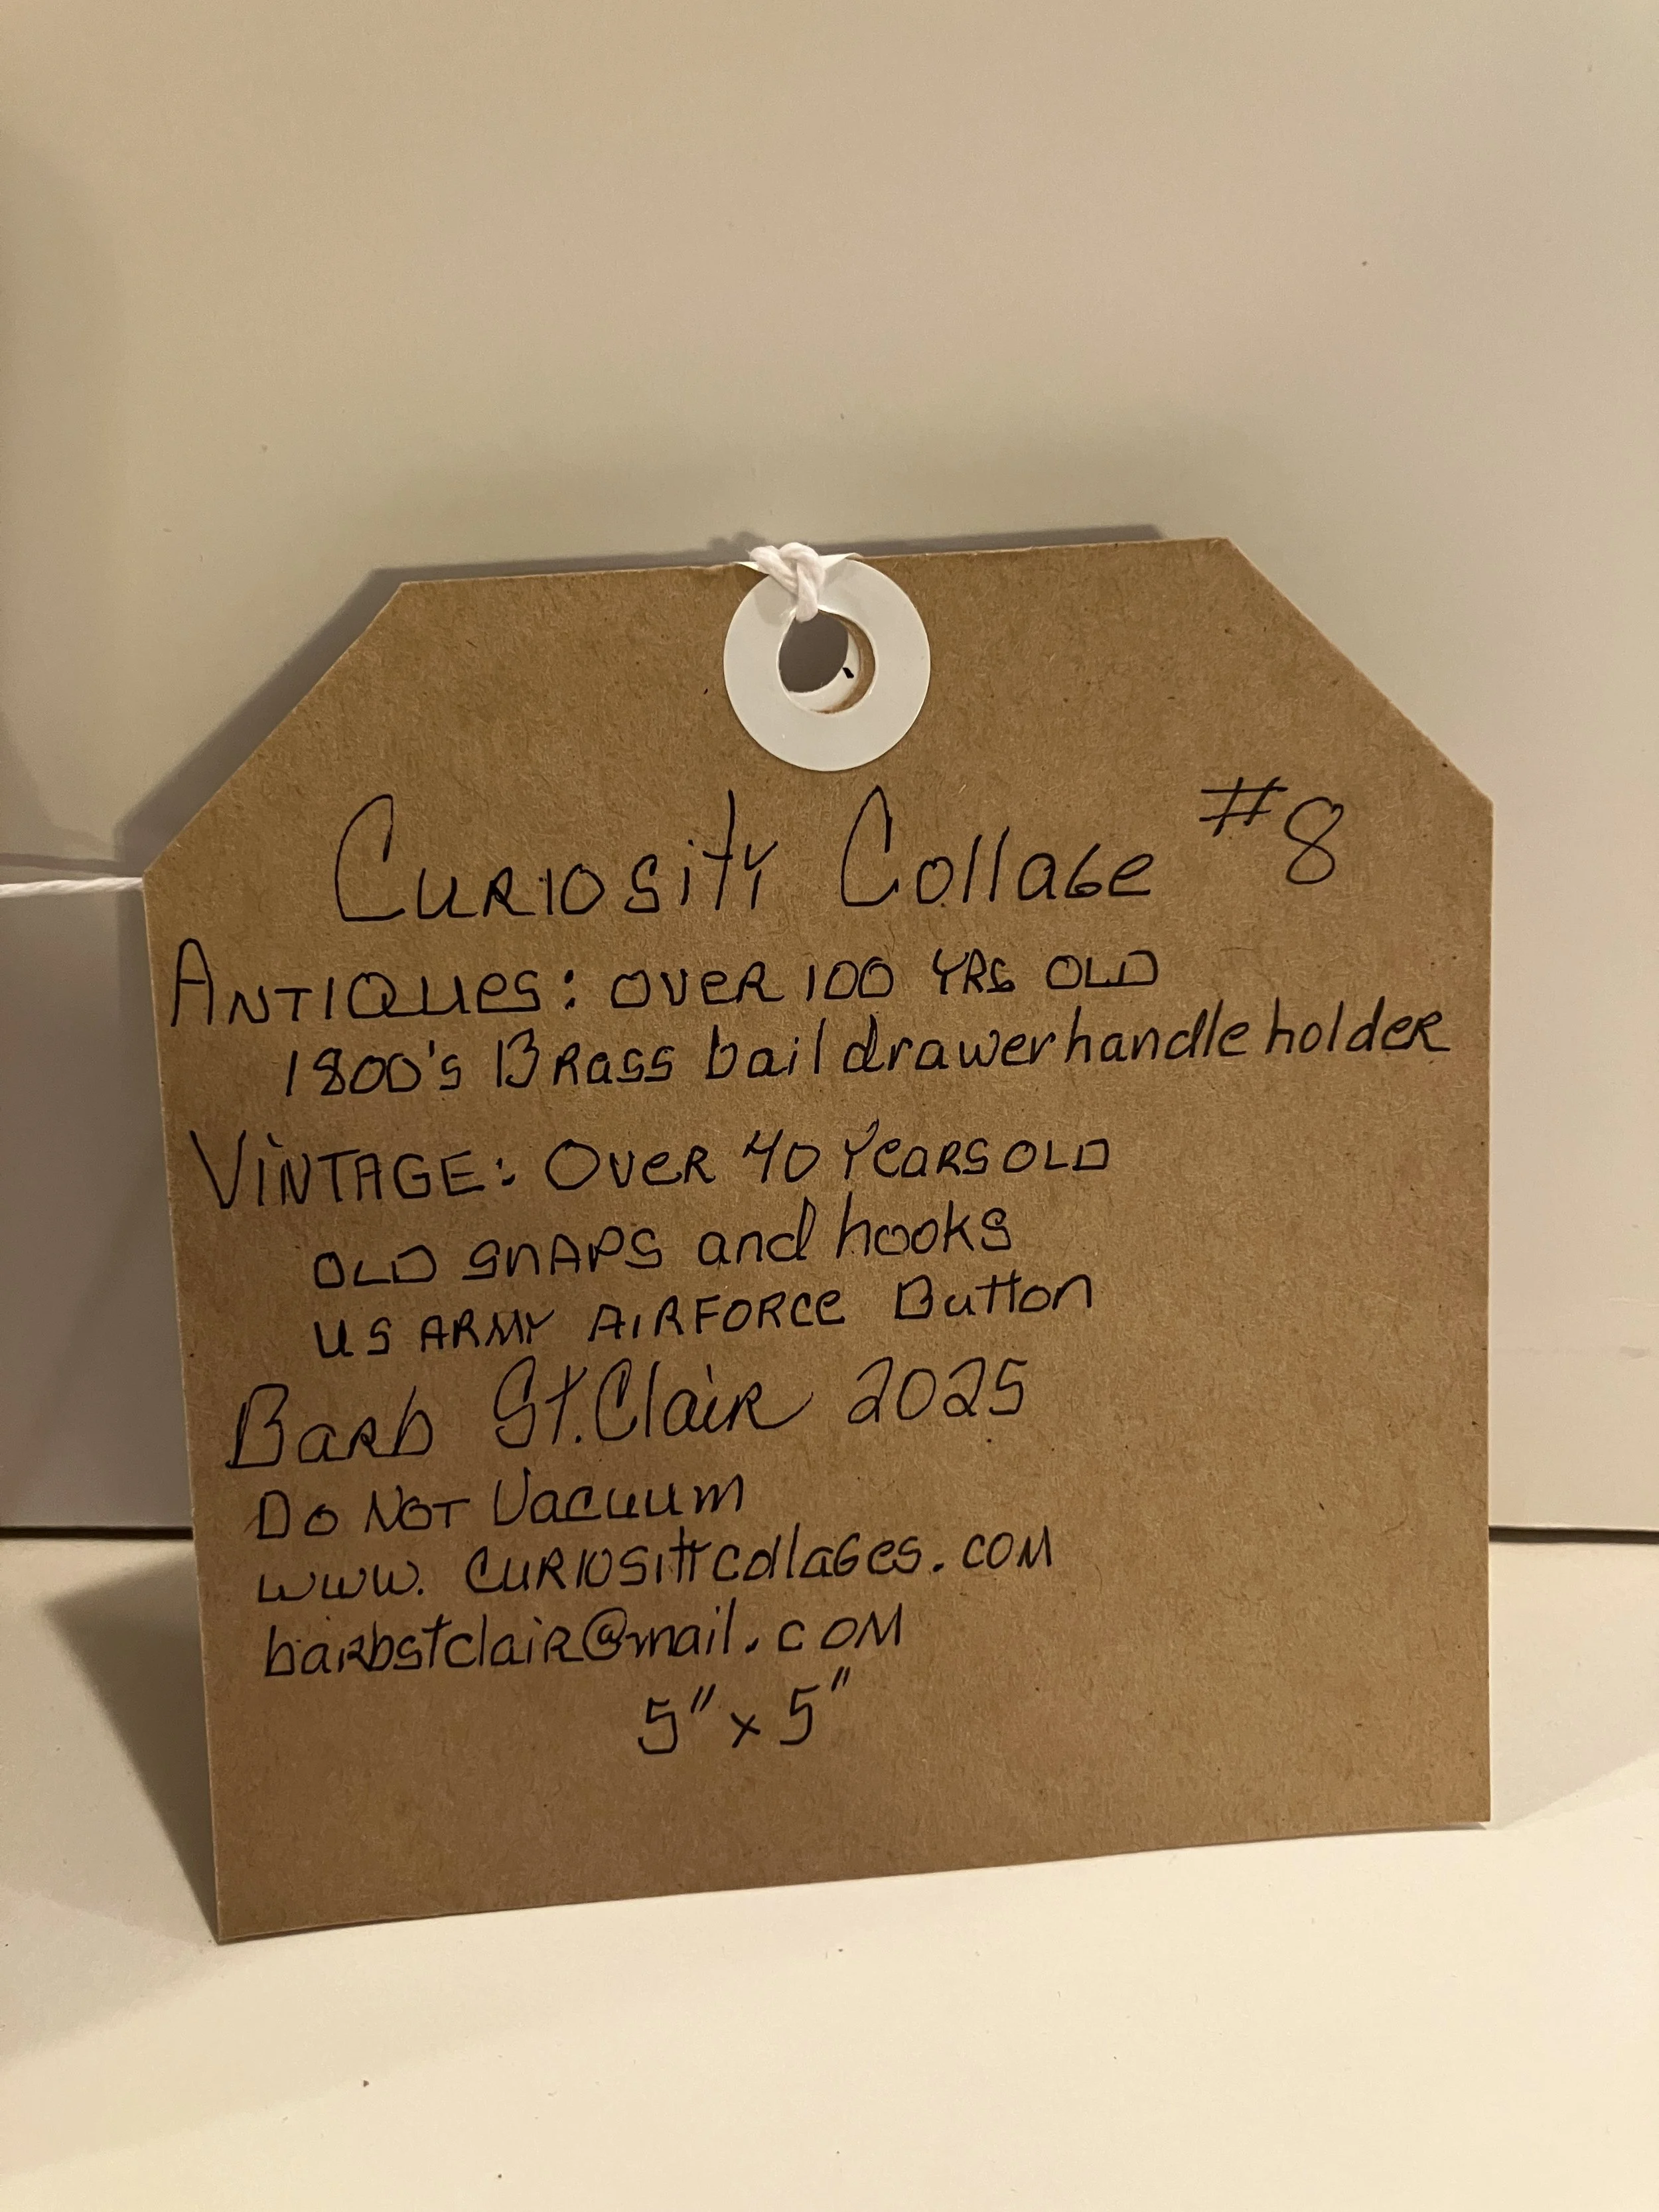 Curiosity Collage #8
Antiques: over 100 YRS OLD
1800's Brass bail drawer handle holder
VINTAGE: Over 40 Years OLD
OLD SNAPS and hooks
US ARMY AIRFORCE Button
Barb St. Clair 2025
Do Not Vacuum
www.curiositycollages.com
barbstclair@mail.com
5" x 5"